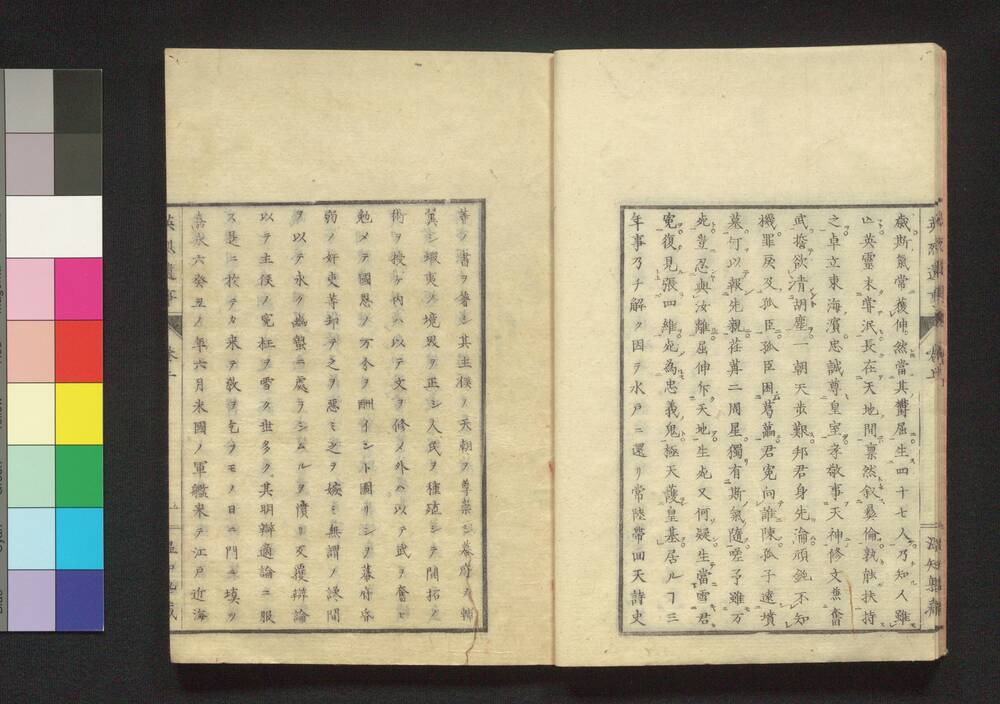 歳斯氣常獲伸然當其鬱屈生四十七人乃知人雖
亡英靈未嘗泯長在天地間稟然叙彝倫孰能扶持
之卓立東海濱忠誠尊皇室孝敬事天神修文兼奮
武誓欲清胡塵一朝天歩艱邦君身先淪頑鈍不知
機罪戻及孤臣孤臣困葛藟君寃向誰陳孤子遠墳
墓何以報先親荏苒二周星獨有斯氣隨嗟予雖万
死豈忍與汝離屈伸斥天地生死又何疑生當雪君
寃復見張四維死為忠義鬼極天護皇基居ルヿ三
年事乃チ解ク因テ水戸ニ還リ常陸帶回天詩史
等ノ書ヲ著シ其主侯ノ天朝ヲ尊崇シ幕府ヲ輔
翼シ蝦夷ノ境界ヲ正シ人民ヲ種殖シテ開拓ノ
術ヲ授ケ内ハ以テ文ヲ修メ外ハ以テ武ヲ奮ヒ
勉メテ國恩ノ万分ヲ酬イント圖リシヲ幕府昏
弱ノ奸吏等却テ之ヲ惡ミ之ヲ嫉ミ無謂ノ誅
ヲ以テ永ク幽蟄ニ處ラシムルヲ憤リ反覆辯論
以テ主侯ノ寃枉ヲ雪ク世多ク其明辯適論ニ服
ス是ニ於テカ来テ教ヲ乞フモノ日ニ門ニ填ツ
嘉永六癸丑ノ年六月米國ノ軍艦来テ江戸近海